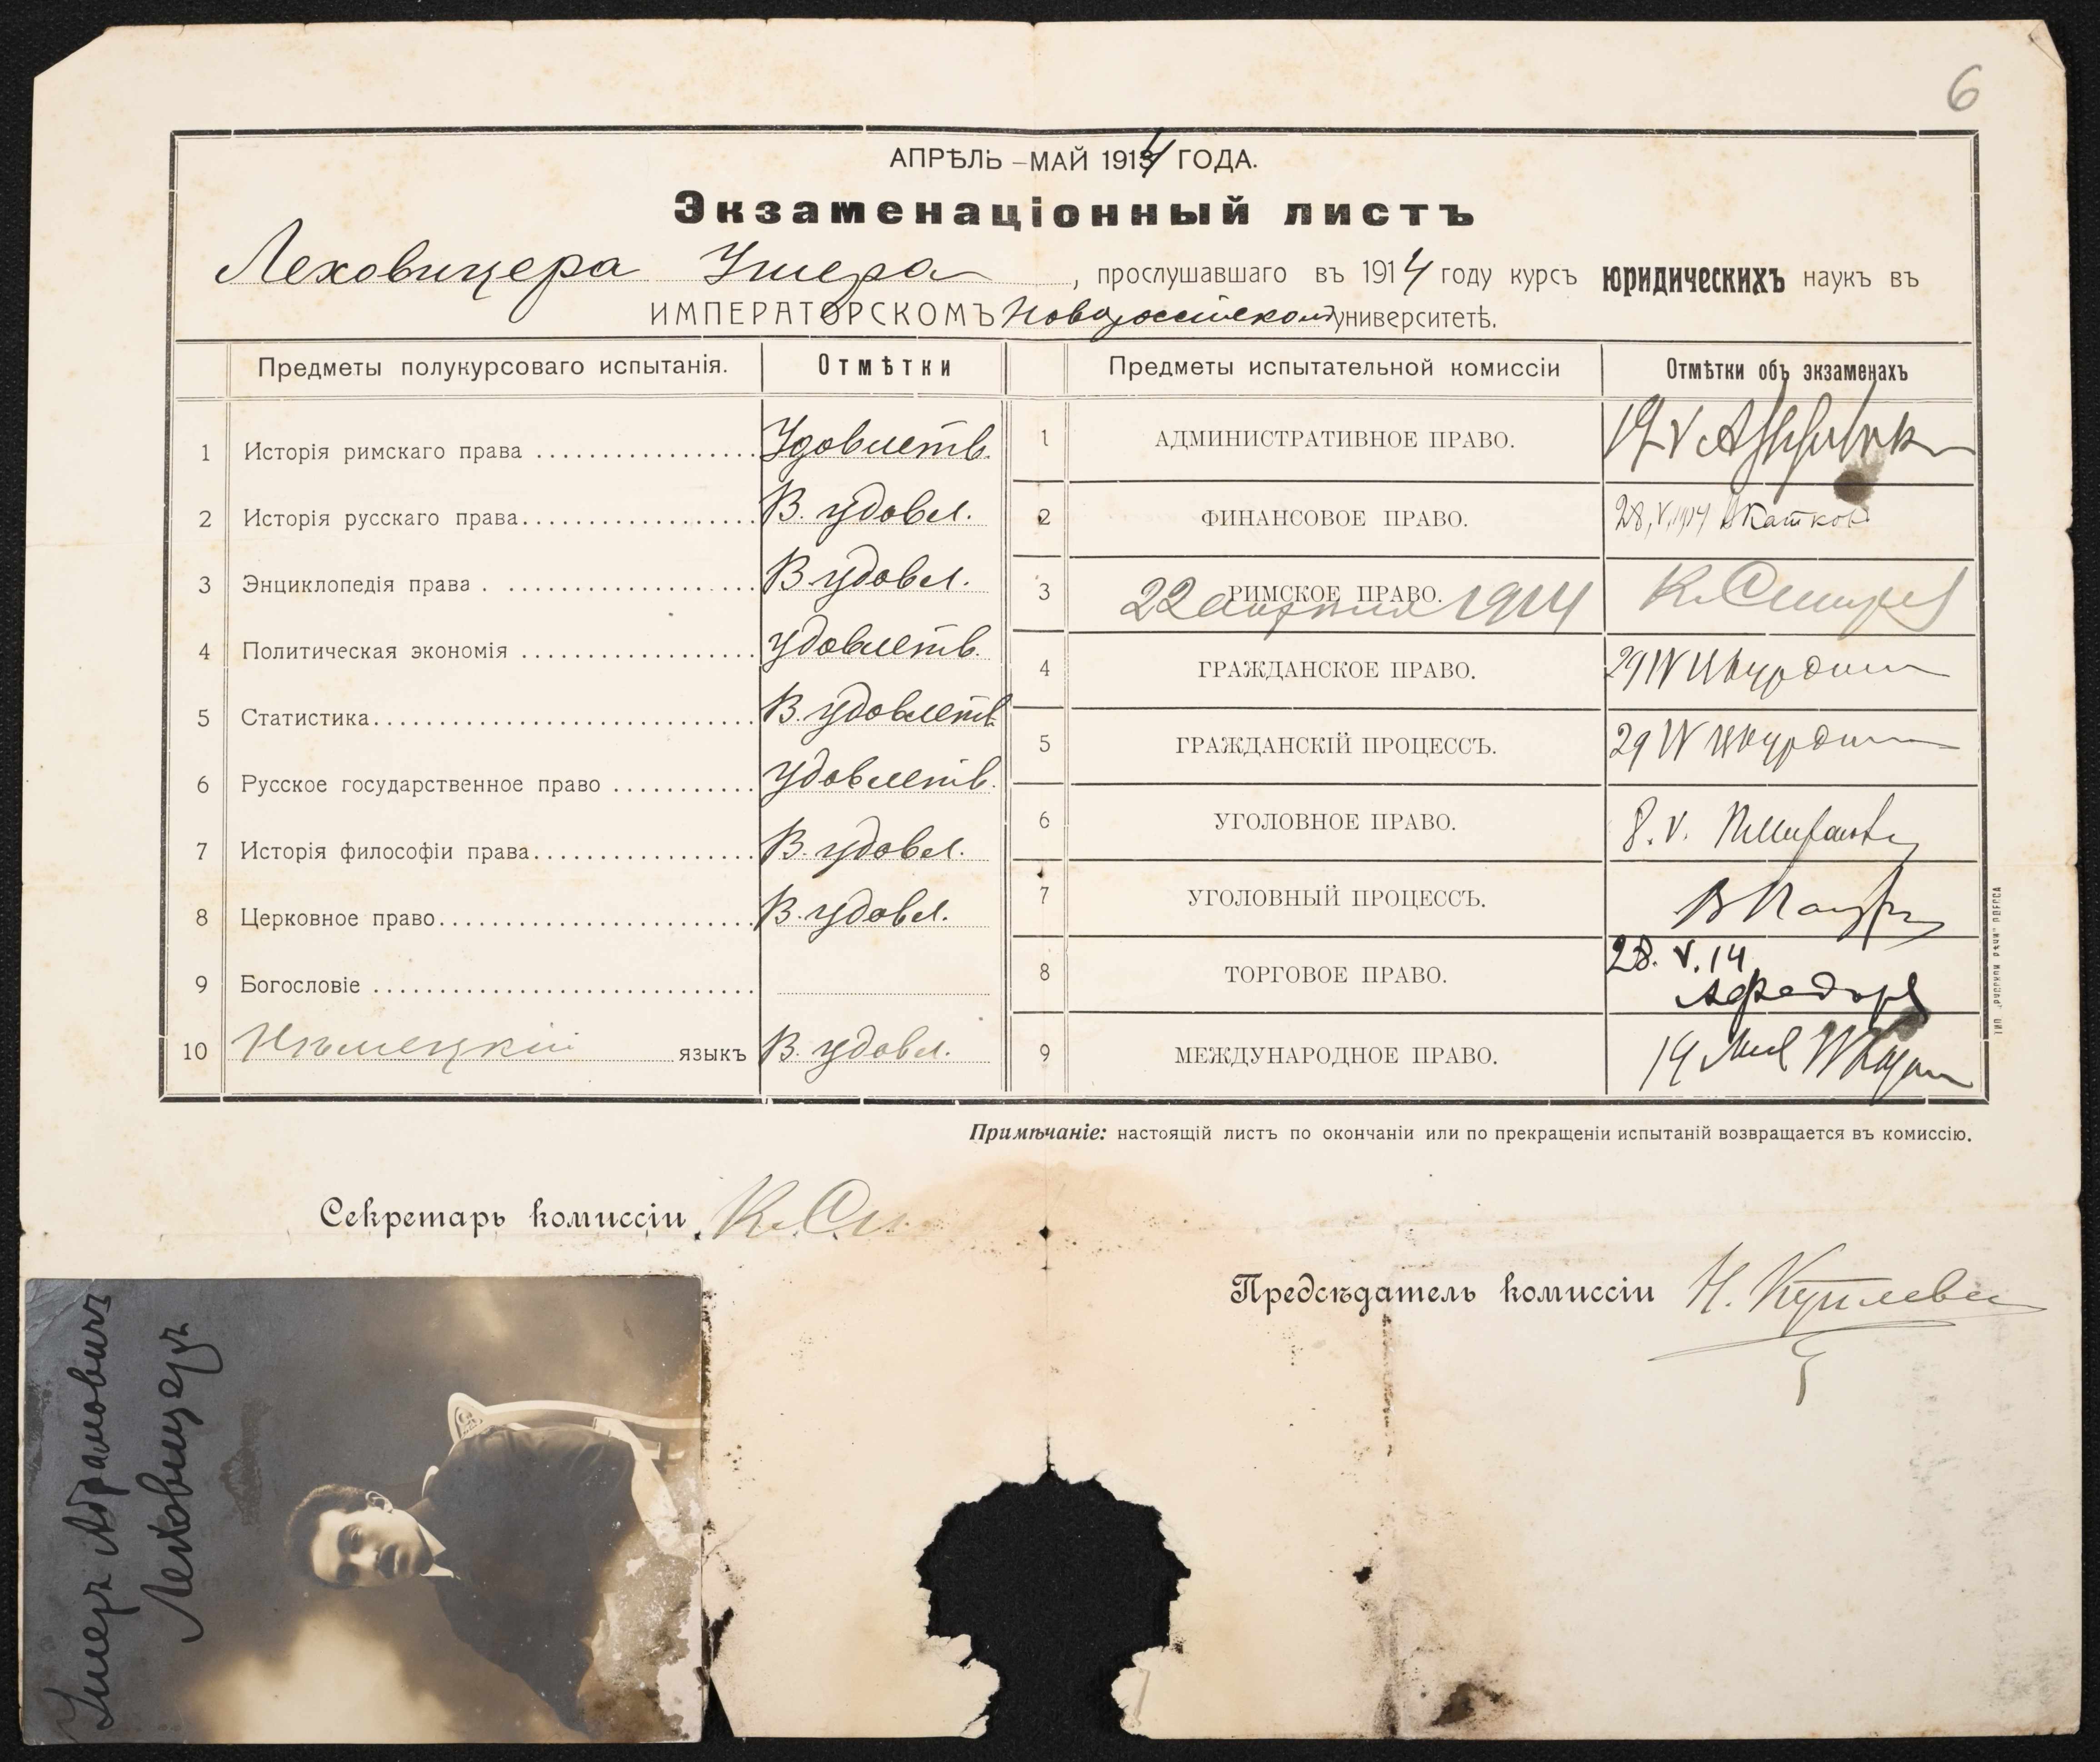 6
АПРѢЛЬ – МАЙ 1914 ГОДА.
Экзаменаціонный листъ
Леховицера Ушера, прослушавшаго въ 1914 году курсъ юридическихъ наукъ въ
ИМПЕРАТОРСКОМЪ Новороссійскомъ университетѣ.
Предметы полукурсоваго испытанія. Отмѣтки
1 Исторія римскаго права Удовлетв.
2 Исторія русскаго права В. удовл.
3 Энциклопедія права В. удовл.
4 Политическая экономія удовлетв.
5 Статистика В. удовлетв.
6 Русское государственное право удовлетв.
7 Исторія философіи права В. удовл.
8 Церковное право В. удовл.
9 Богословіе
10 Нѣмецкій языкъ В. удовл.
Предметы испытательной комиссіи Отмѣтки объ экзаменахъ
1 АДМИНИСТРАТИВНОЕ ПРАВО.
2 ФИНАНСОВОЕ ПРАВО. 28.V.1914 Катков
3 РИМСКОЕ ПРАВО.
22 апрѣля 1914
4 ГРАЖДАНСКОЕ ПРАВО. 29 IV
5 ГРАЖДАНСКІЙ ПРОЦЕССЪ. 29 IV
6 УГОЛОВНОЕ ПРАВО. 8.V.
7 УГОЛОВНЫЙ ПРОЦЕССЪ.
8 ТОРГОВОЕ ПРАВО. 28.V.14
9 МЕЖДУНАРОДНОЕ ПРАВО. 19
ТИП. „РУССКОЙ РѢЧИ" ОДЕССА
Примѣчаніе: настоящій листъ по окончаніи или по прекращеніи испытаній возвращается въ комиссію.
Секретарь комиссіи К. См
Предсѣдатель комиссіи
Ушеръ Абрамовичъ
Леховицеръ